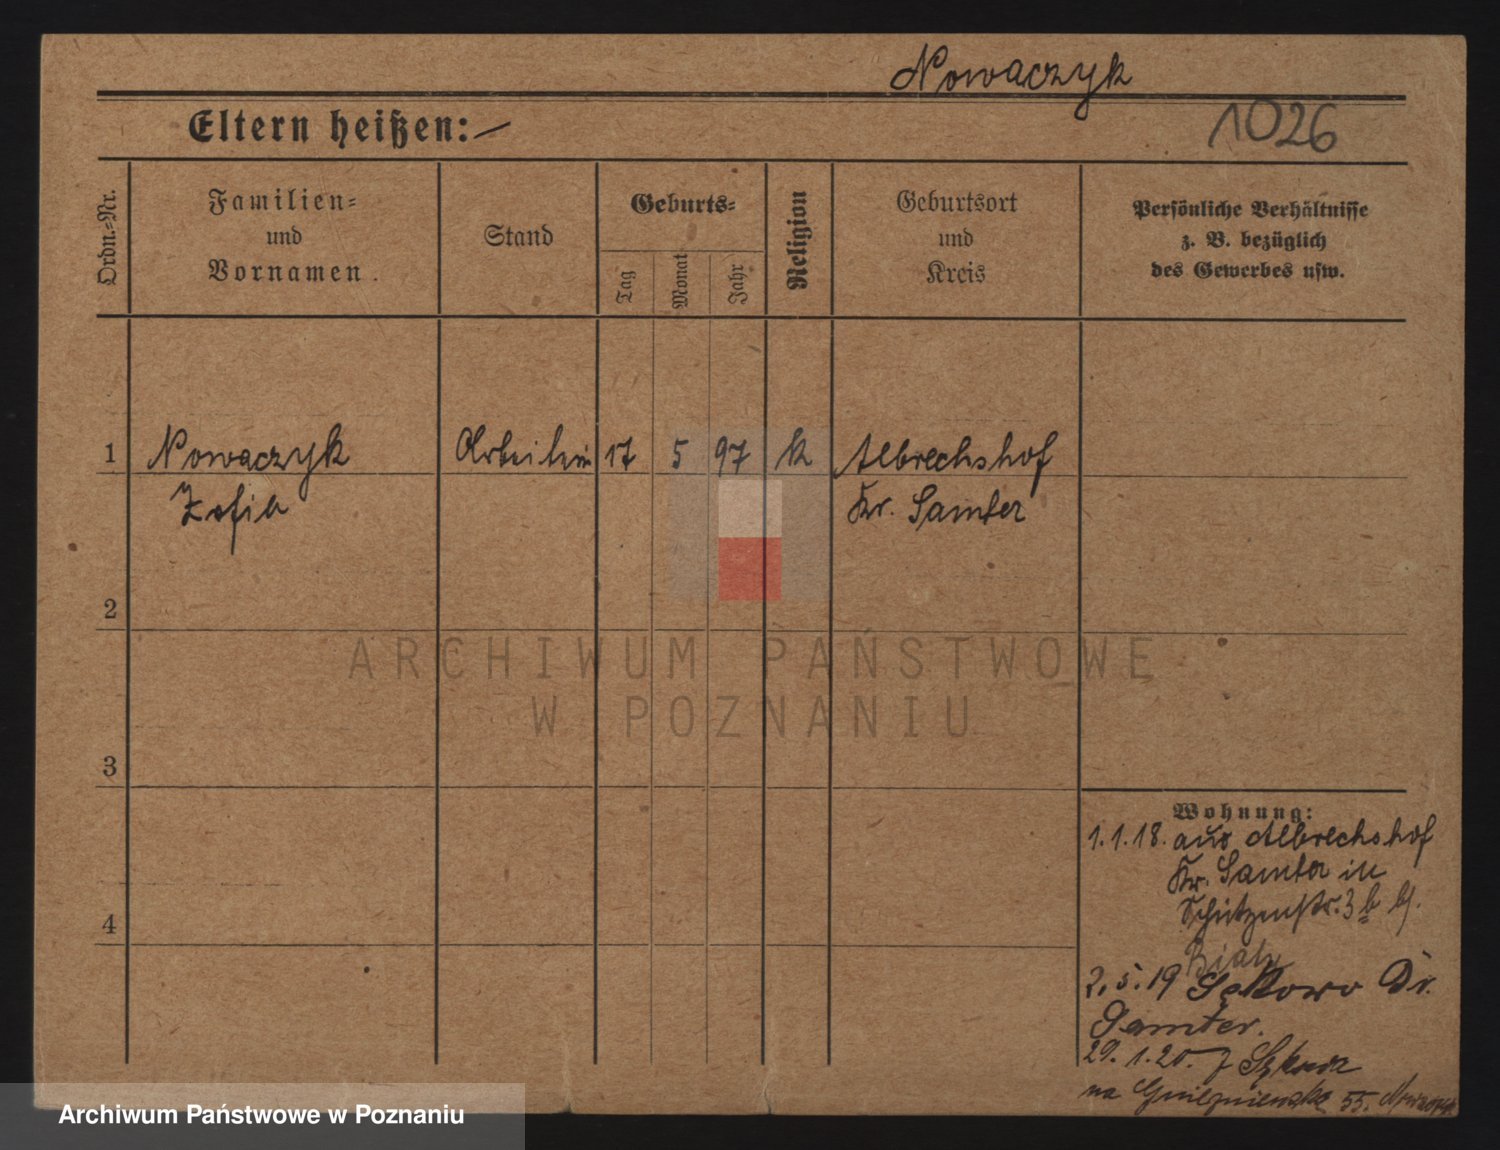 Nowaczyk
Eltern heißen: —
1026
Ordn.-Nr.
Familien-
und
Vornamen.
Stand
Geburts-
Tag
Monat
Jahr
Religion
Geburtsort
und
Kreis
Persönliche Verhältnisse
z. B. bezüglich
des Gewerbes usw.
1 Nowaczyk Arbeiterin 17 5 97 k Albrechshof
Zofia Kr. Samter
2
ARCHIWUM PAŃSTWOWE
W POZNANIU
3
Wohnung:
1.1.18. aus Albrechshof
Kr. Samter in
Schützenstr. 3b b/.
4
Bialy
2.5.19 Sękowo Kr.
Samter.
29.1.20. z Sękowa
na Gnieźnieńska 55. Nowaczyk
Archiwum Państwowe w Poznaniu